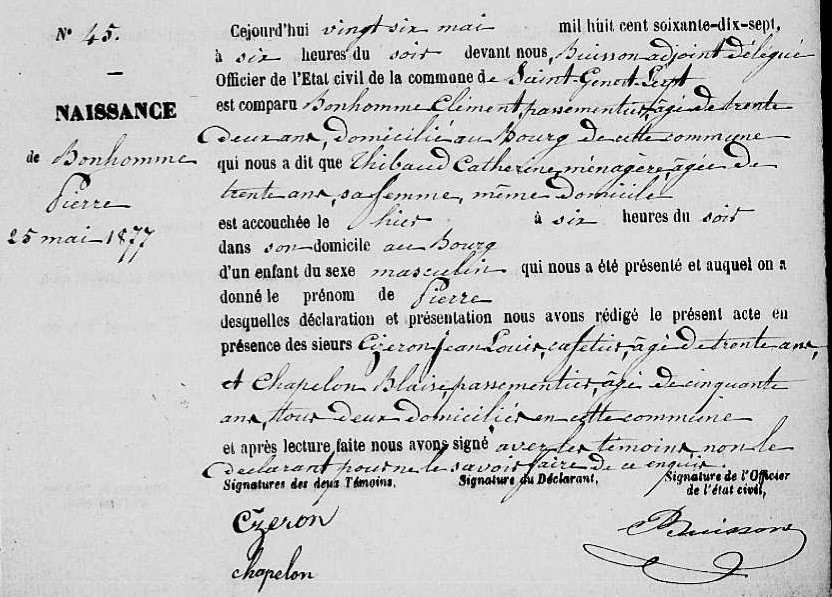 N° 45.
NAISSANCE
de Bonhomme
Pierre
25 mai 1877
Cejourd'hui vingt six mai mil huit cent soixante-dix-sept,
à six heures du soir devant nous, Buisson adjoint délégué
Officier de l'Etat civil de la commune de Saint-Genest-Lerpt
est comparu Bonhomme Clément, passementier, âgé de trente
deux ans, domicilié au Bourg de cette commune
qui nous a dit que Thibaud Catherine, ménagère, âgée de
trente ans, sa femme, même domicile
est accouchée le hier à six heures du soir
dans son domicile au Bourg
d'un enfant du sexe masculin qui nous a été présenté et auquel on a
donné le prénom de Pierre
desquelles déclaration et présentation nous avons rédigé le présent acte en
présence des sieurs Cizeron Jean Louis, cafetier, âgé de trente ans,
et Chapelon Blaise, passementier, âgé de cinquante
ans, tous deux domiciliés en cette commune
et après lecture faite nous avons signé avec les témoins, non le
déclarant pour ne le savoir faire de ce enquis.
Signatures des deux Témoins, Signature du Déclarant, Signature de l'Officier
de l'état civil,
Cizeron
chapelon
Buisson